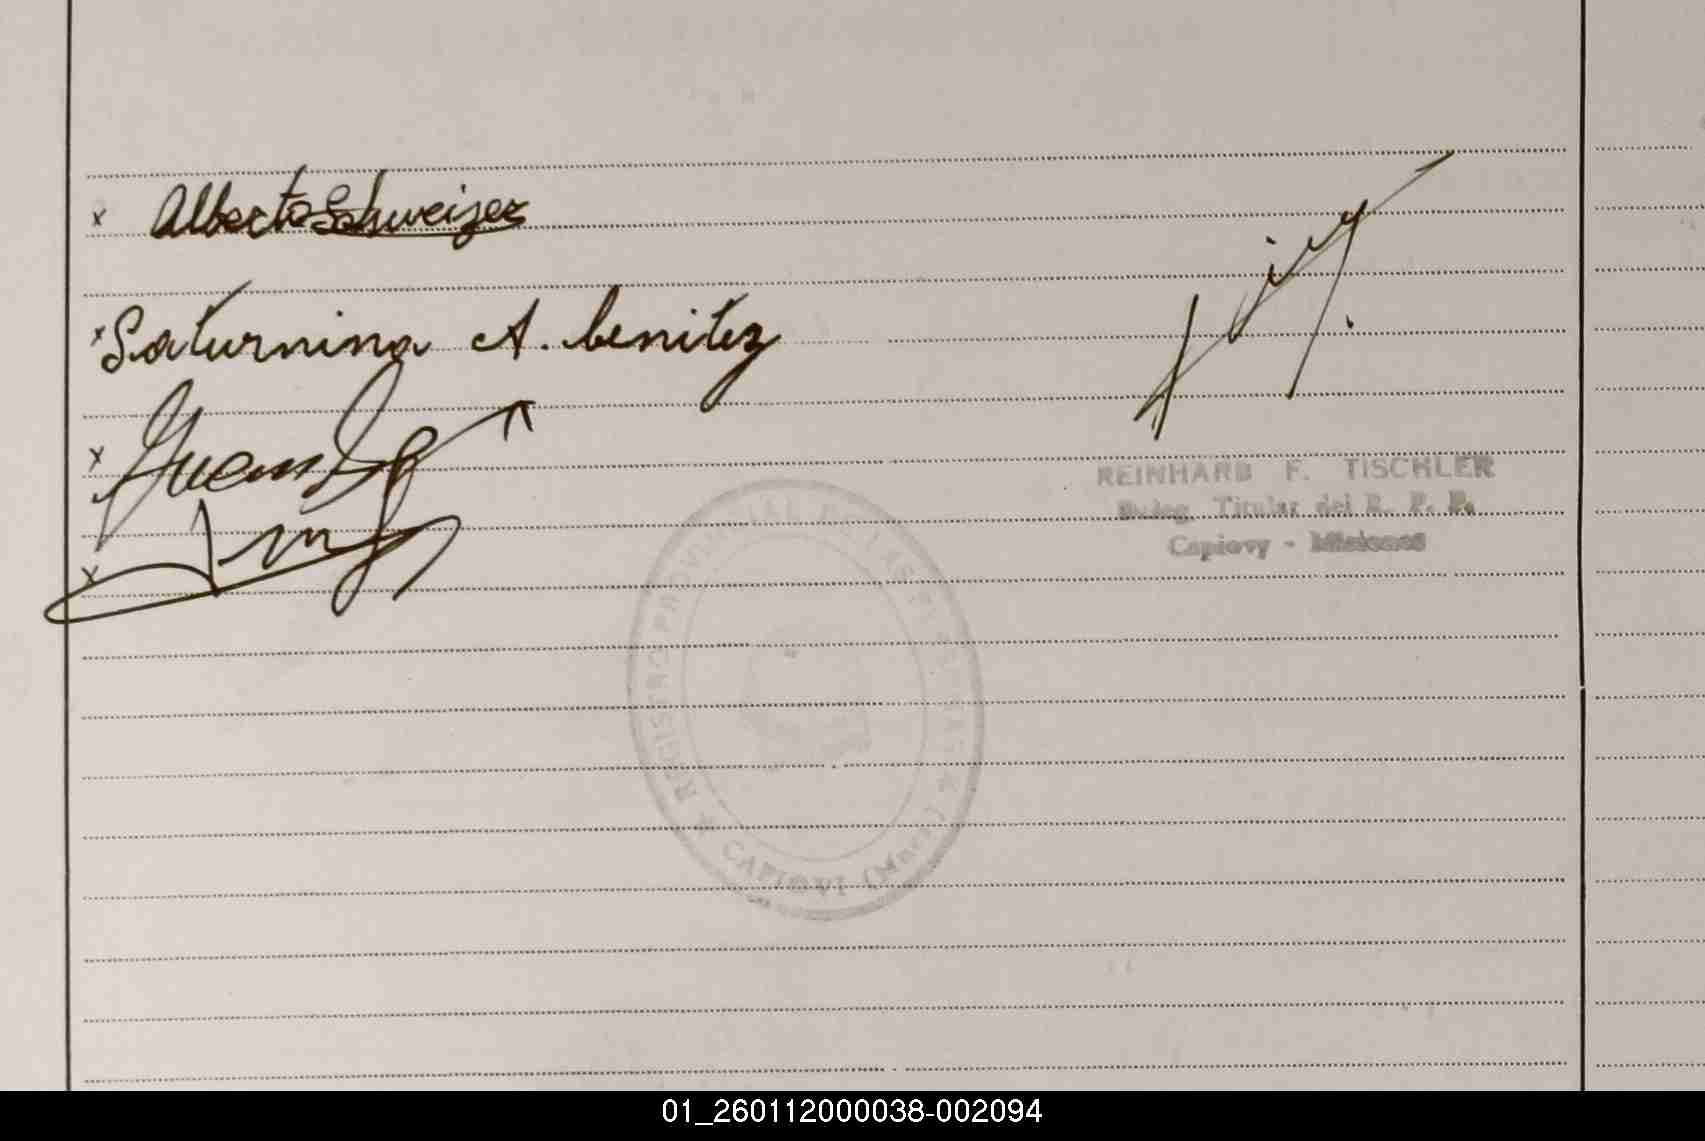 x Alberto Schweizer
x Saturnina A. benitez
x
x
REINHARD F. TISCHLER
Deleg. Titular del R. P. P.
Capiovy - Misiones
REGISTRO PROVINCIAL DE LAS PERSONAS ★ CAPIOVI (Mnes.) ★
01_260112000038-002094